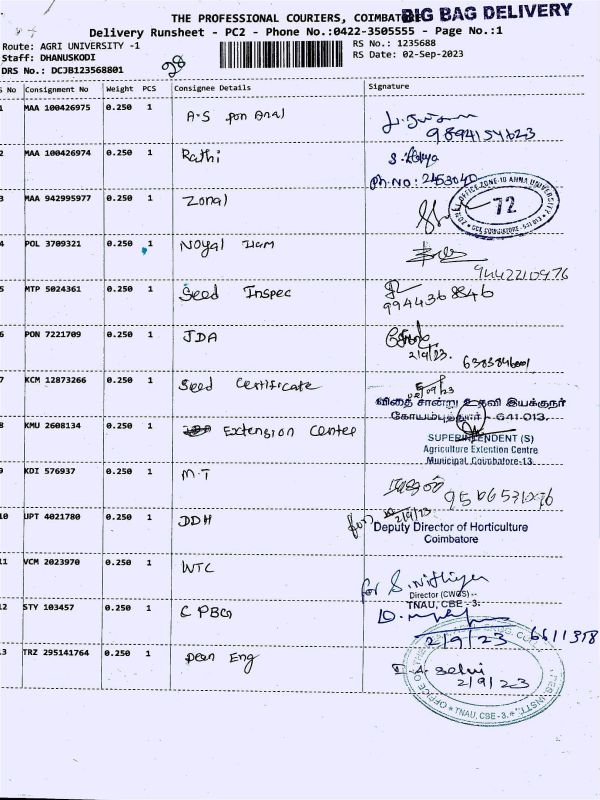 BIG BAG DELIVERY
THE PROFESSIONAL COURIERS, COIMBATORE
Delivery Runsheet - PC2 - Phone No.:0422-3505555 - Page No.:1
Route: AGRI UNIVERSITY -1
RS No.: 1235688
Staff: DHANUSKODI
RS Date: 02-Sep-2023
DRS No.: DCJB123568801
28
S No Consignment No Weight PCS Consignee Details Signature
1 MAA 100426975 0.250 1 A.S pon Anal
9894154623
2 MAA 100426974 0.250 1 Rathi
Ph.No: 2453040
3 MAA 942995977 0.250 1 Zonal
OFFICE ZONE-10 ANNA UNIVERSITY
72
4 POL 3709321 0.250 1 Noyal
9442210976
5 MTP 5024361 0.250 1 Seed Inspec
9944368846
6 PON 7221709 0.250 1 JDA
2/9/23.
7 KCM 12873266 0.250 1 Seed Certificate
விதை சான்று உதவி இயக்குநர்
கோயம்புத்தூர் - 641 013.
8 KMU 2608134 0.250 1 Extension Center
SUPERINTENDENT (S)
Agriculture Extection Centre
Municipal, Coimbatore-13.
9 KDI 576937 0.250 1 M.T
10 UPT 4021780 0.250 1 DDH
for
2/9/23
Deputy Director of Horticulture
Coimbatore
11 VCM 2023970 0.250 1 WTC
for S. Nithiya
Director (CWGS)
TNAU, CBE - 3.
12 STY 103457 0.250 1 C PBG
2/9/23 6611378
13 TRZ 295141764 0.250 1 Dean Eng
D. A. Selvi
2/9/23
TNAU, CBE-3.